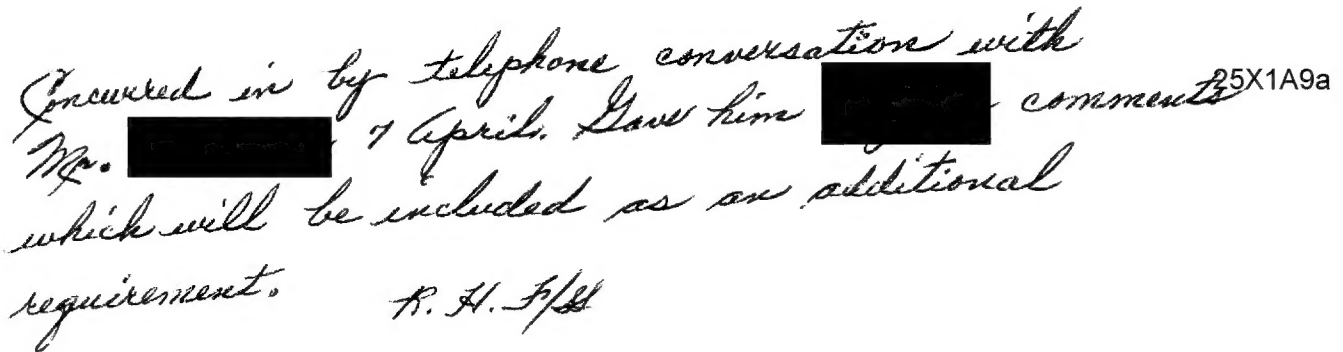 Concurred in by telephone conversation with
Mr. 7 April. Gave him comments 25X1A9a
which will be included as an additional
requirement. R. H. F/